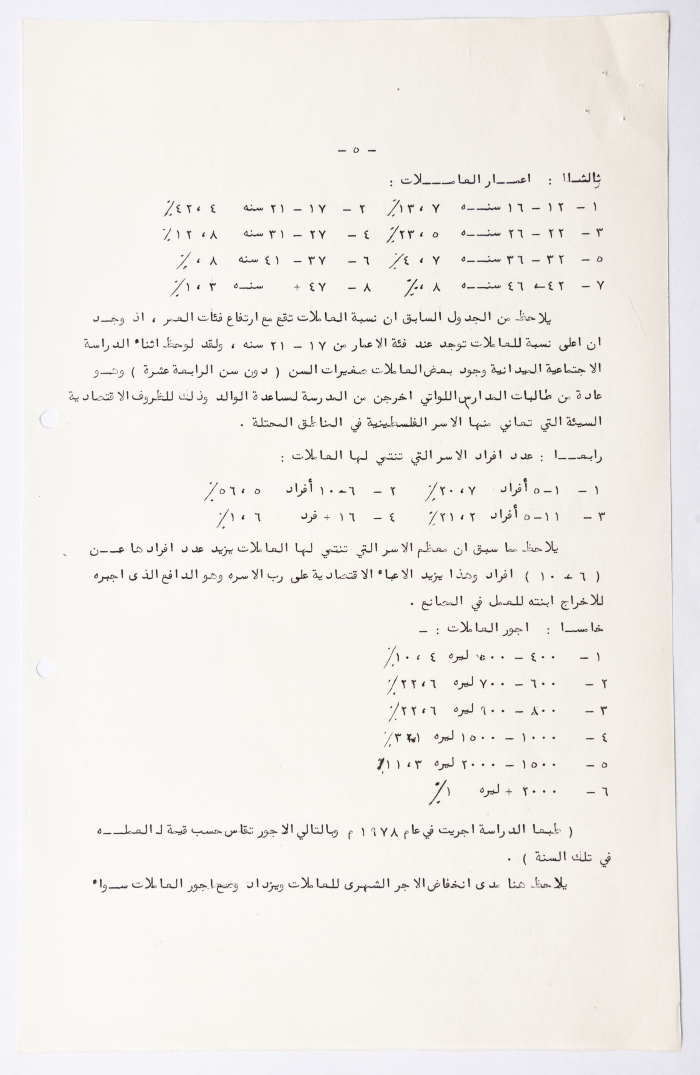 - ٥ -
ثالثا : اعمار العاملات :
١ - ١٢ - ١٦ سنه ١٣،٧٪ ٢ - ١٧ - ٢١ سنه ٤٢،٤٪
٣ - ٢٢ - ٢٦ سنه ٢٣،٥٪ ٤ - ٢٧ - ٣١ سنه ١٢،٨٪
٥ - ٣٢ - ٣٦ سنه ٤،٧٪ ٦ - ٣٧ - ٤١ سنه ٠،٨٪
٧ - ٤٢ - ٤٦ سنه ٠،٨٪ ٨ - ٤٧ + سنه ١،٣٪
يلاحظ من الجدول السابق ان نسبة العاملات تقع مع ارتفاع فئات العمر ، اذ وجد
ان اعلى نسبة للعاملات توجد عند فئة الاعمار من ١٧ - ٢١ سنه ، ولقد لوحظ اثناء الدراسة
الاجتماعية الميدانية وجود بعض العاملات صغيرات السن ( دون سن الرابعة عشرة ) وهو
عادة من طالبات المدارس اللواتي اخرجن من المدرسة لمساعدة الوالد وذلك للظروف الاقتصادية
السيئة التي تعاني منها الاسر الفلسطينية في المناطق المحتلة .
رابعا : عدد افراد الاسر التي تنتمي لها العاملات :
١ - ١-٥ أفراد ٢٠،٧٪ ٢ - ٦-١٠ أفراد ٥٦،٥٪
٣ - ١١-٥ أفراد ٢١،٢٪ ٤ - ١٦ + فرد ١،٦٪
يلاحظ مما سبق ان معظم الاسر التي تنتمي لها العاملات يزيد عدد افرادها عن
( ٦ - ١٠ ) افراد وهذا يزيد الاعباء الاقتصادية على رب الاسره وهو الدافع الذى اجبره
للاخراج ابنته للعمل في المصانع .
خامسا : اجور العاملات : -
١ - ٤٠٠ - ٥٠٠ ليره ١٠،٤٪
٢ - ٦٠٠ - ٧٠٠ ليره ٢٢،٦٪
٣ - ٨٠٠ - ٩٠٠ ليره ٢٢،٦٪
٤ - ١٠٠٠ - ١٥٠٠ ليره
٥ - ١٥٠٠ - ٢٠٠٠ ليره ١١،٣٪
٦ - ٢٠٠٠ + ليره ١٪
( طبعا الدراسة اجريت في عام ١٩٧٨ م وبالتالي الاجور تقاس حسب قيمة لـ العمله
في تلك السنة ) .
يلاحظ هنا مدى انخفاض الاجر الشهرى للعاملات ويزداد وضع اجور العاملات سواء